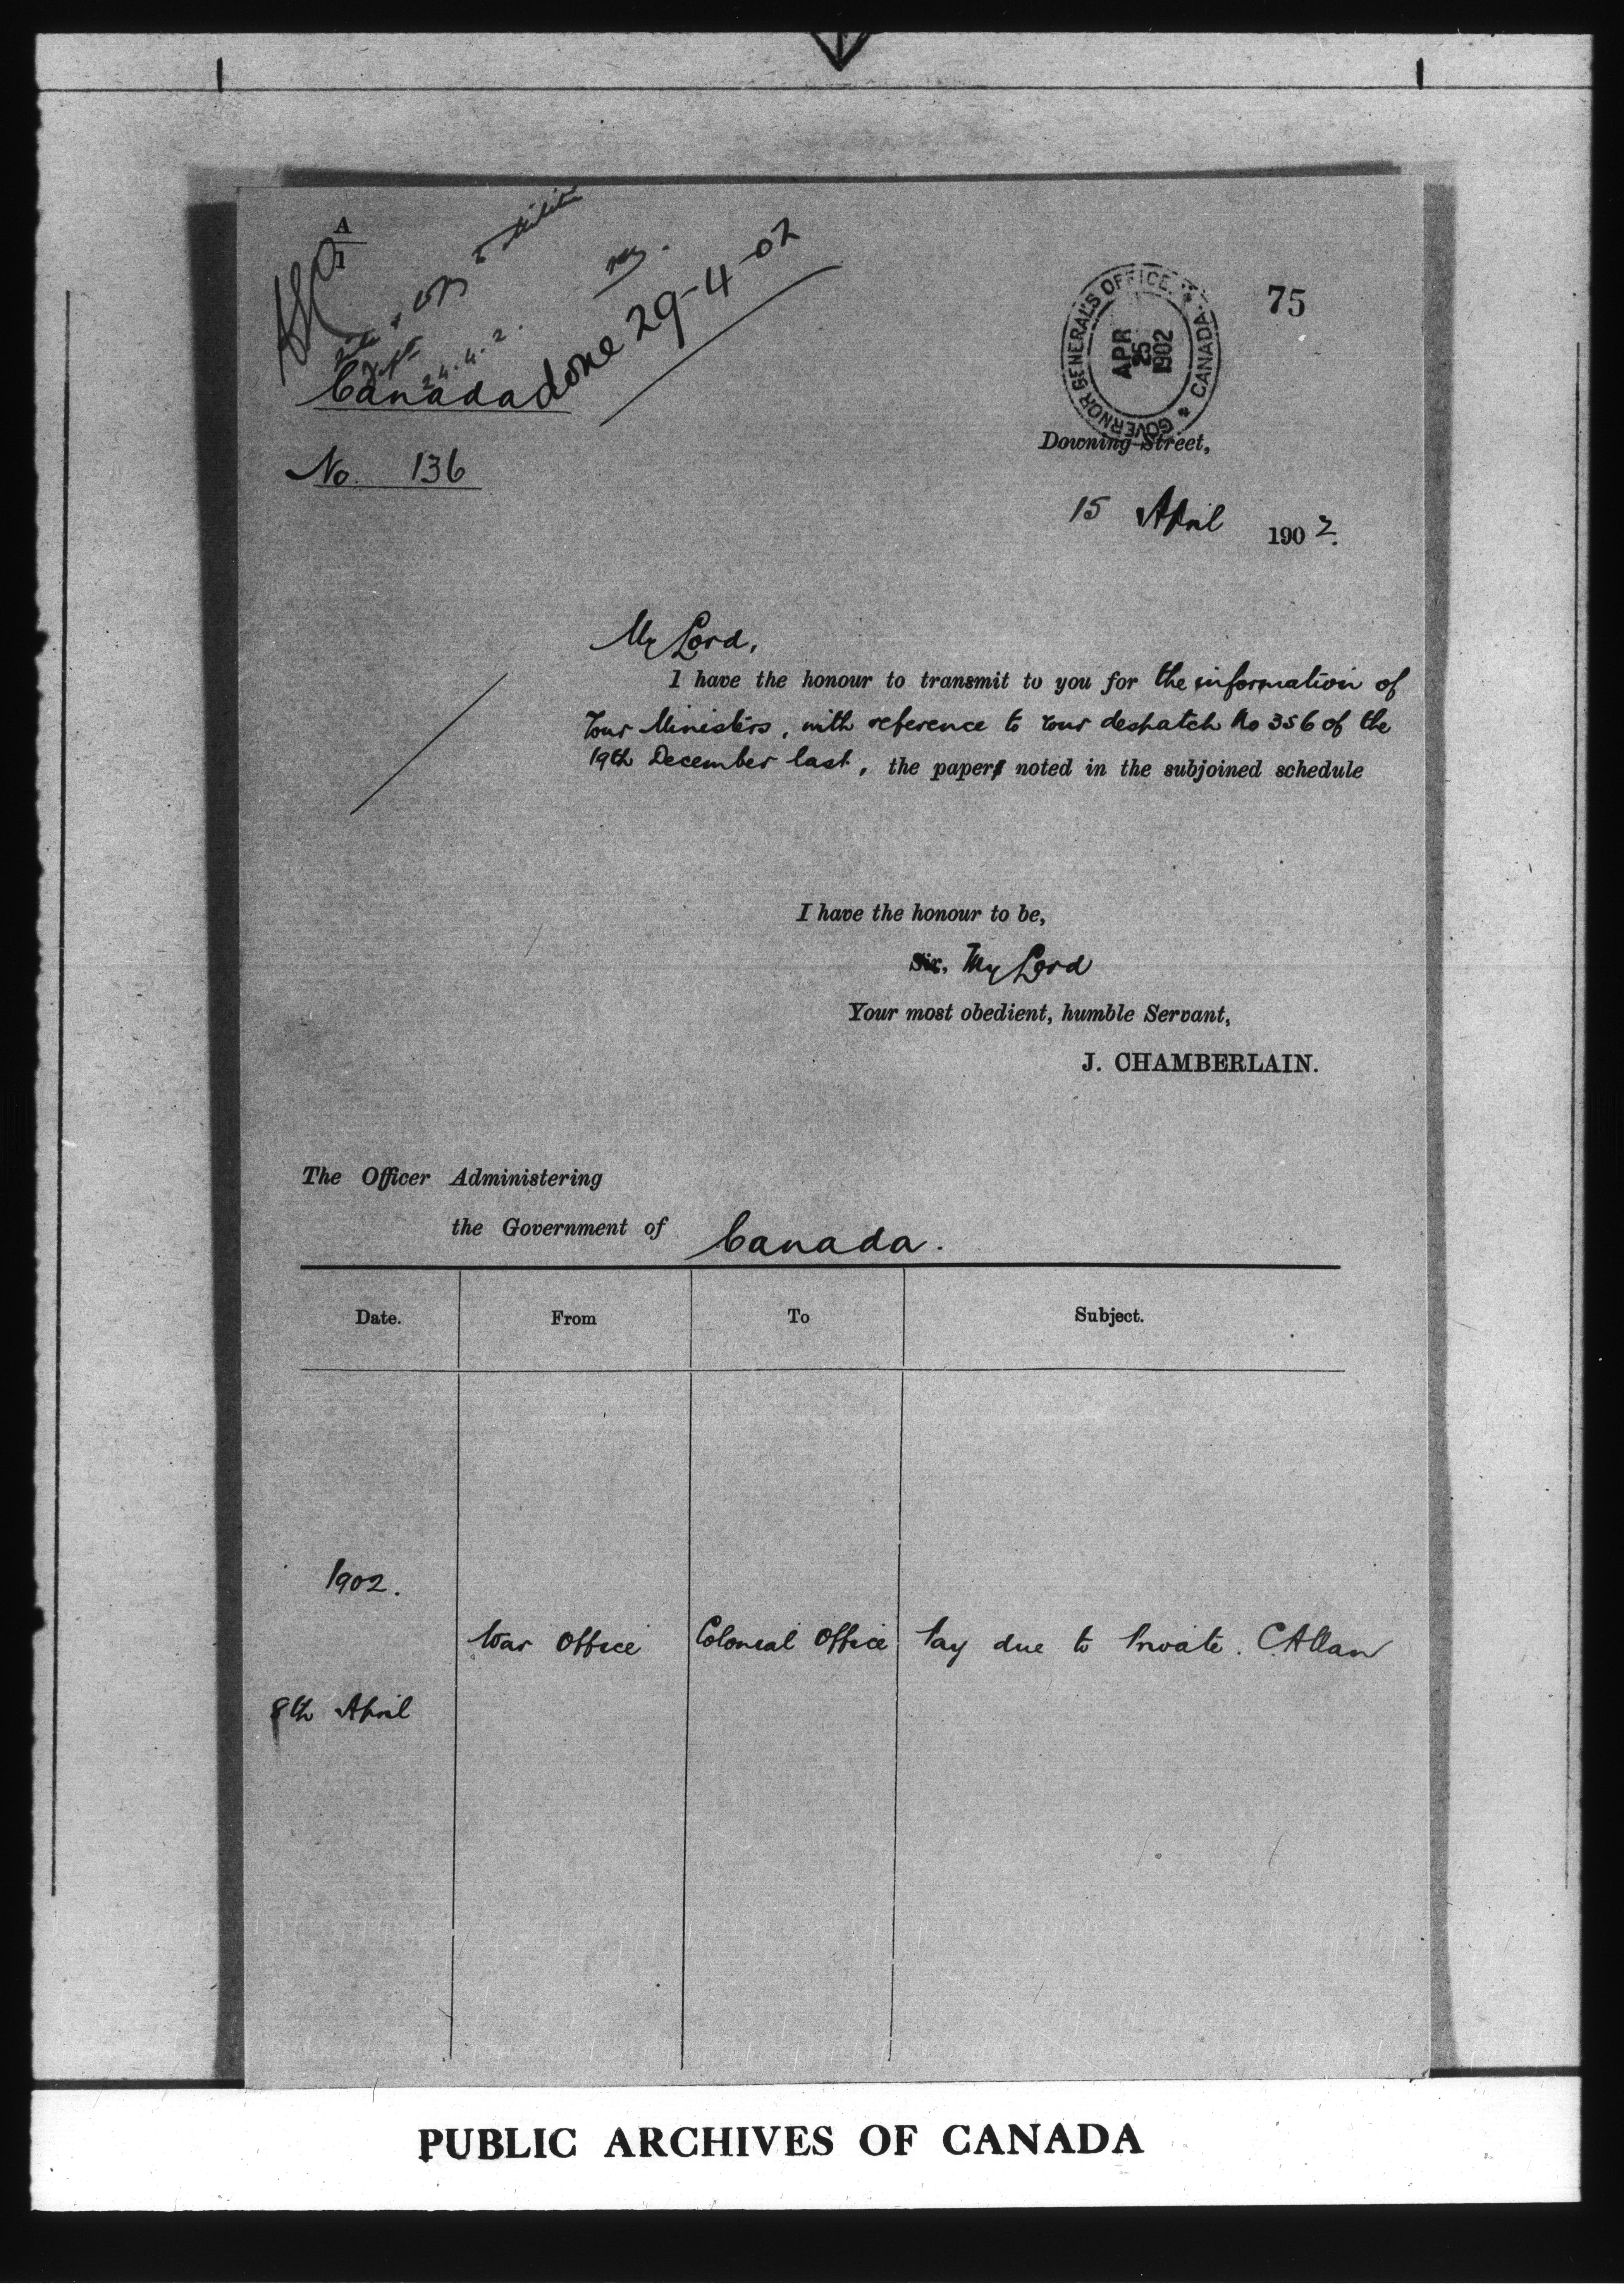 A
1
to Militia
24.4.2.
done 29-4-02
Canada
No. 136
GOVERNOR GENERAL'S OFFICE. CANADA
APR
25
1902
75
Downing Street,
15 April 1902.
My Lord,
I have the honour to transmit to you for the information of
Your Ministers, with reference to Your despatch No 356 of the
19th December last, the paper noted in the subjoined schedule
I have the honour to be,
Sir, My Lord
Your most obedient, humble Servant,
J. CHAMBERLAIN.
The Officer Administering
the Government of Canada.
Date. From To Subject.
1902.
War Office Colonial Office Pay due to Private. C. Allan
8th April
PUBLIC ARCHIVES OF CANADA